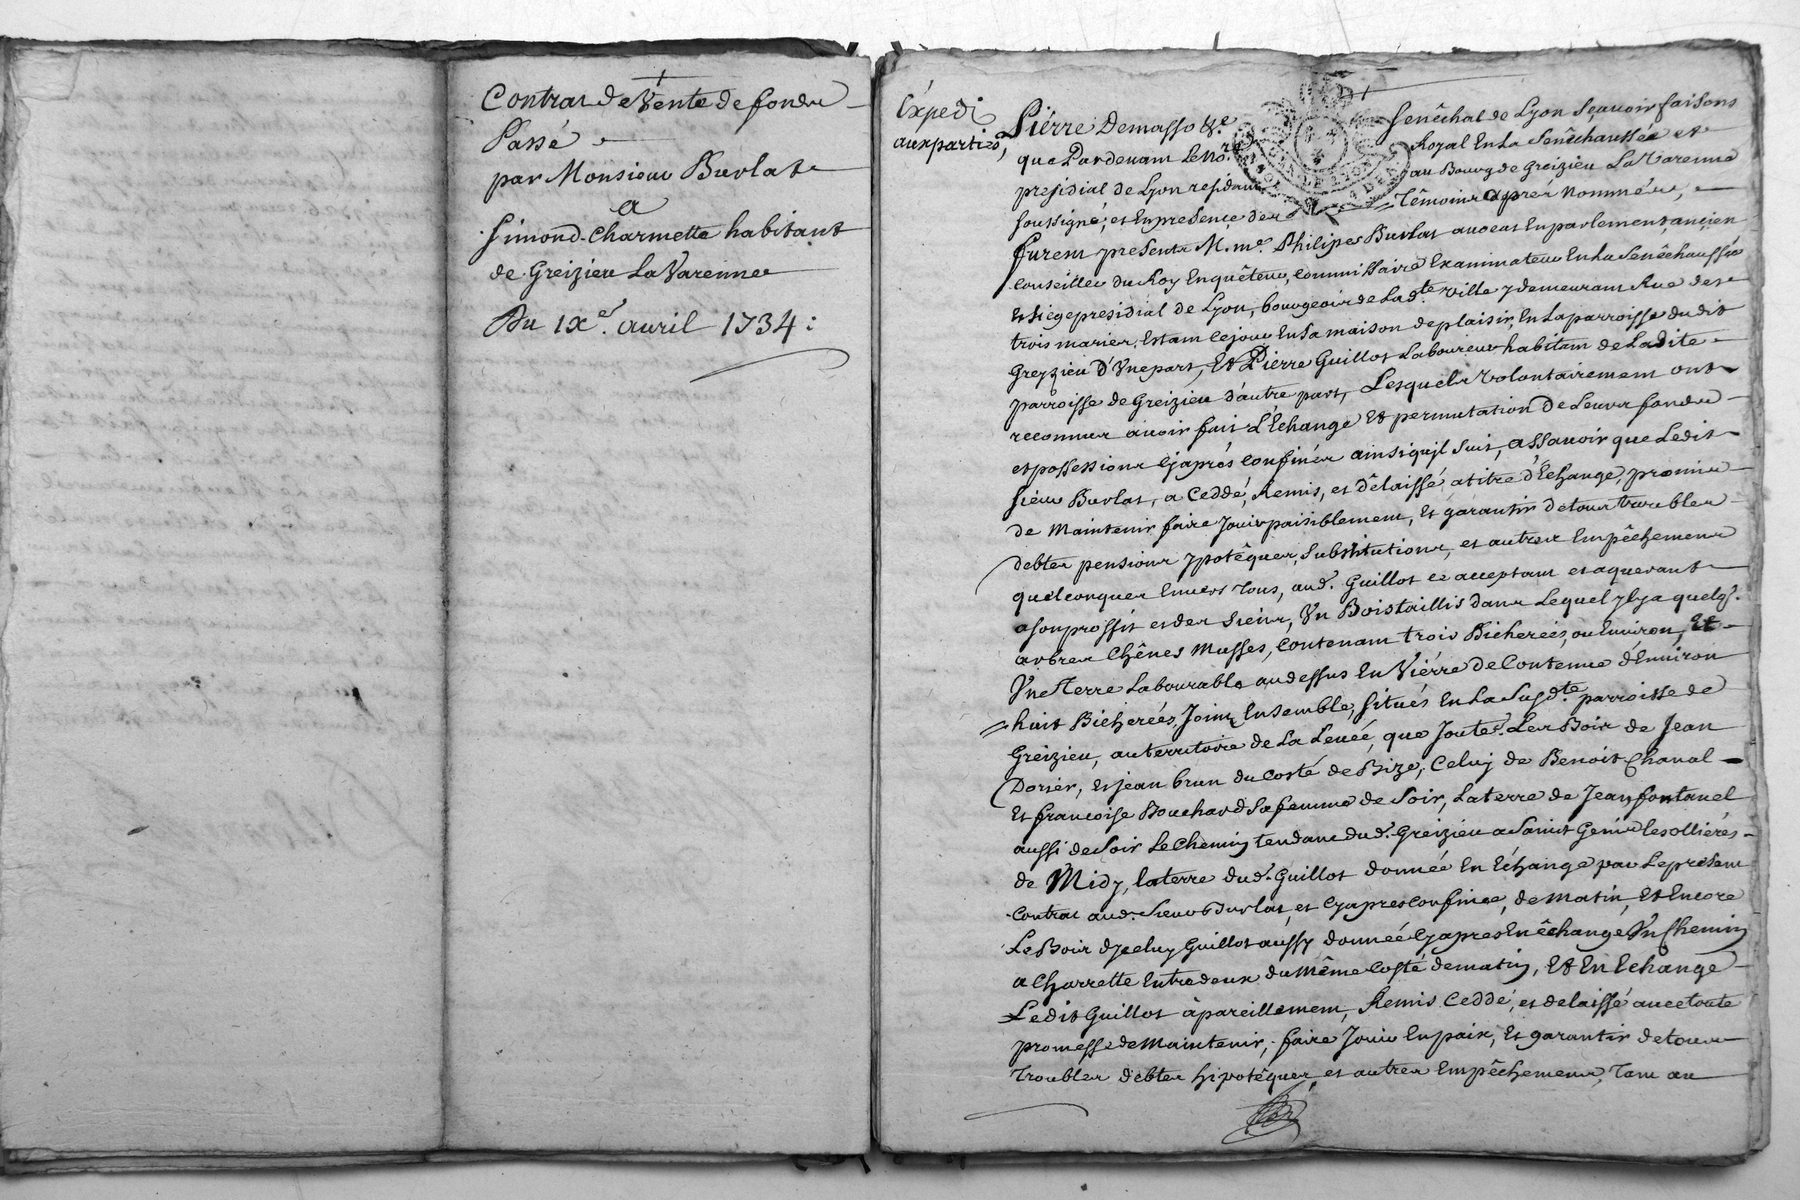 Contrat de Vente de fonds
Passé
par Monsieur Burlat
A
Simond Charmette habitant
de Greizieu La Varenne
Du IXe. avril 1734:
Expedi
aux parties
Pierre Demasso &c. Senêchal de Lyon Sçavoir faisons
que Pardevant le nore. Royal En La Senêchaussée et
presidial de Lyon residant au Bourg de Greizieu La Varenne
soussigné, et En presence des Têmoins aprés nommés,
furent presents M. me. Philipes Burlat avocat En parlement, ancien
Conseiller du Roy Enquêteur, Commissaire Examinateur En La Senêchaussée
Et Siege presidial de Lyon, bourgeois de Lad.te Ville y demeurant Rue des
trois maries, Estant ce jour En Sa maison de plaisir, En La parroisse dudit
Greyzieu D'Une part, Et Pierre Guillot Laboureur habitant de Ladite
parroisse de Greizieu d'autre part, Lesquels Volontairement ont
reconnus avoir fait L'Echange Et permutation De Leurs fonds
et possessions Cy aprés Confinés ainsi qujl Suit, assavoir que Ledit
Sieur Burlat, a Ceddé, Remis, et dêlaissé a titre d'Echange, promis
de Maintenir faire Jouir paisiblement, Et garantir de tous troubles
debtes pensions ypotêques, Substitutions, et autres Empêchements
quelconques Envers Tous, aud. Guillot ce acceptant et aquerant
a Son proffit et des Siens, Un Bois taillis dans Lequel yl y a quelq.
arbres Chênes Musses, Contenant trois Bicherées, ou Environ, Et
Une Terre Labourable audessus En Vierre de Contenue d'Environ
huit Bicherées, Joint Ensemble, Situés En La Susd.te parroisse de
Greizieu, au territoire de La Levée, que Joute. Les Bois de Jean
Dorier, et jean brun du Costé de Bize, Celuy de Benoit Chanal
Et francoise Bouchard Sa femme de Soir, La terre de Jean fontanel
aussi de Soir Le Chemin tendant dud. Greizieu a Saint Genis les ollières
de Midy, la terre dud. Guillot donnée En Echange par Le present
Contrat aud. Sieur Burlat, et Cy apres Confinée, de Matin, Et Encore
Le Bois dycelluy Guillot aussy donnée Cy apres En êchange Un Chemin
a Charrette Entre deux du Même Costé de matin, Et En Echange
Ledit Guillot à pareillement, Remis Ceddé, et delaissé avec toute
promesse de Maintenir, faire Jouir En paix, Et garantir de tous
Troubles debtes hipotêques et autres Empêchements, Tant au